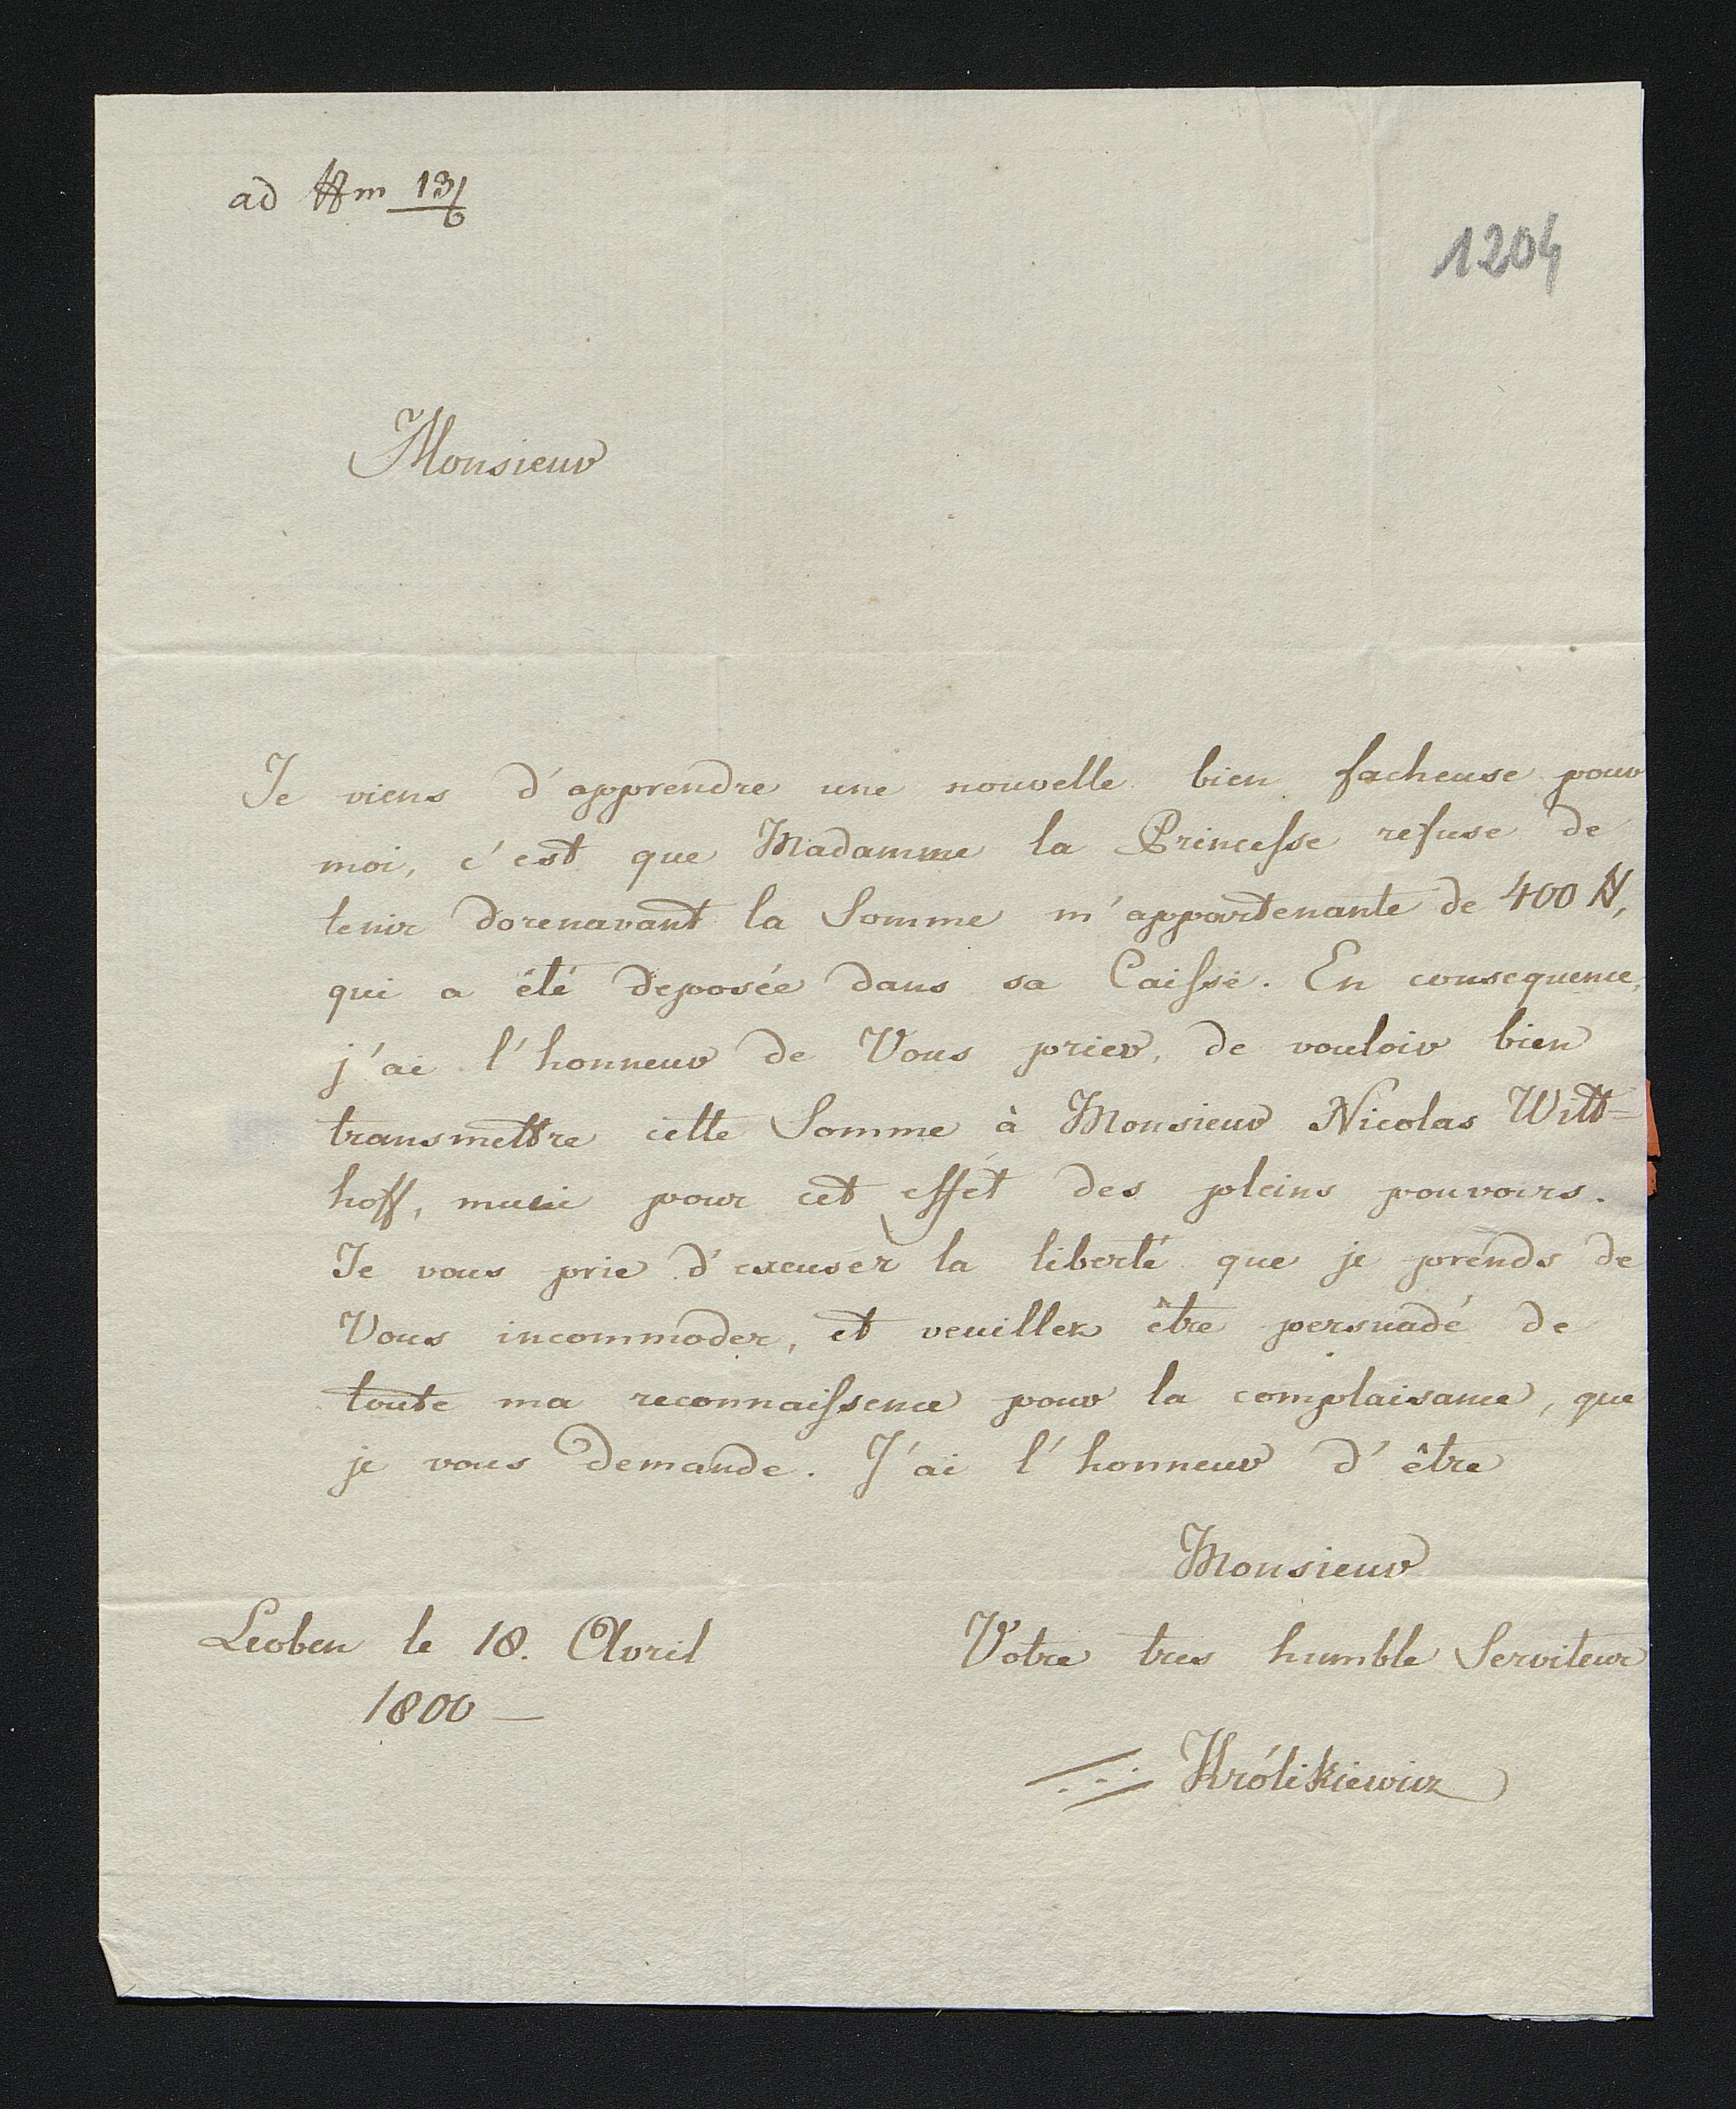 ad 13/6
1204
Monsieur
Je viens d'apprendre une nouvelle bien facheuse pour
moi, c'est que Madamme la Princesse refuse de
tenir dorenavant la Somme m'appartenante de 400
qui a été deposée dans sa Caisse. En consequence,
j'ai l'honneur de Vous prier, de vouloir bien
transmettre cette Somme à Monsieur Nicolas Witt=
hoff, muni pour cet effét des pleins pouvoirs.
Je vous prie d'excuser la liberté que je prends de
Vous incommoder, et veuillez être persuadé de
toute ma reconnaissence pour la complaisance, que
je vous demande. J'ai l'honneur d'être
Monsieur
Leoben le 18. Avril
1800 —
Votre tres humble Serviteur
Królikiewicz